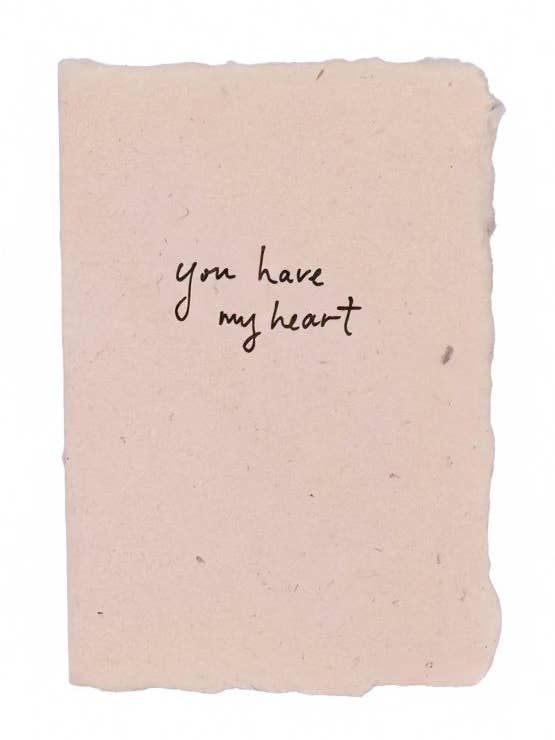 you have
my heart